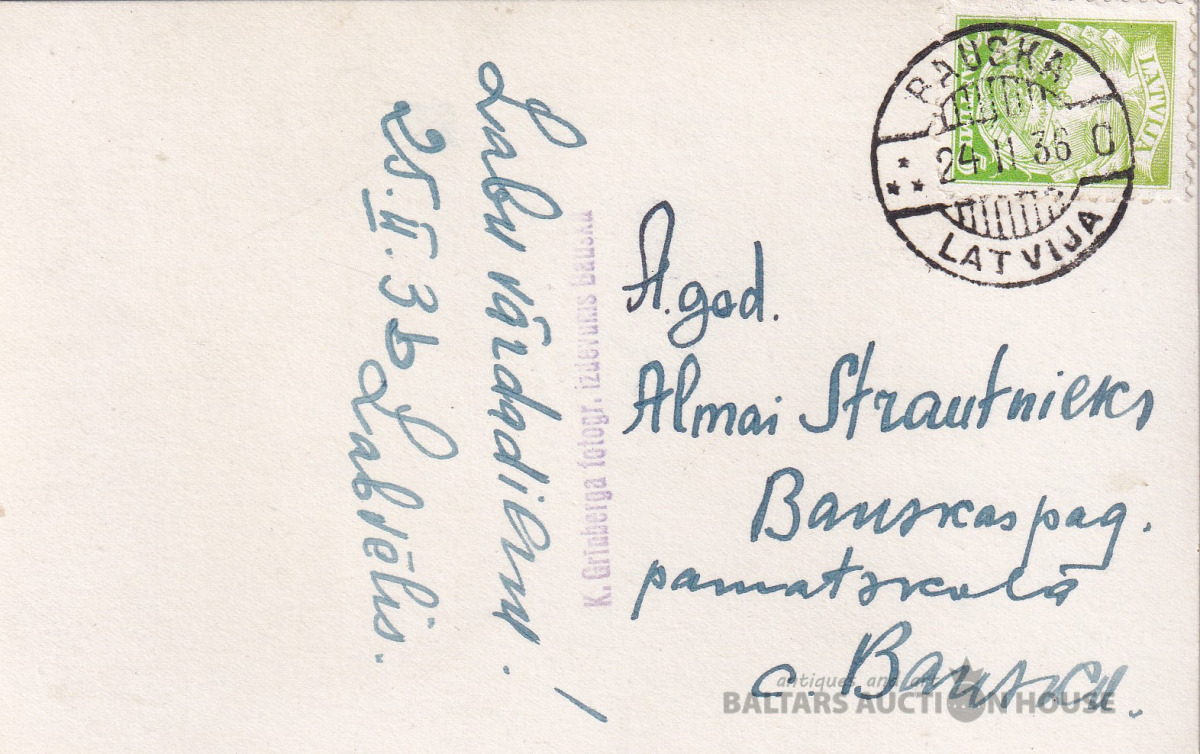 Labu vārdadienu!
25.II.36 Labvēlis.
K. Grinberga fotogr. izdevums Bauskā
A.god.
Almai Strautnieks
Bauskas pag.
pamatskolā
c. Bausku.
BAUSKA
24 II 36 C
LATVIJA
LATVIJA
antiques and art
BALTARS AUCTION HOUSE